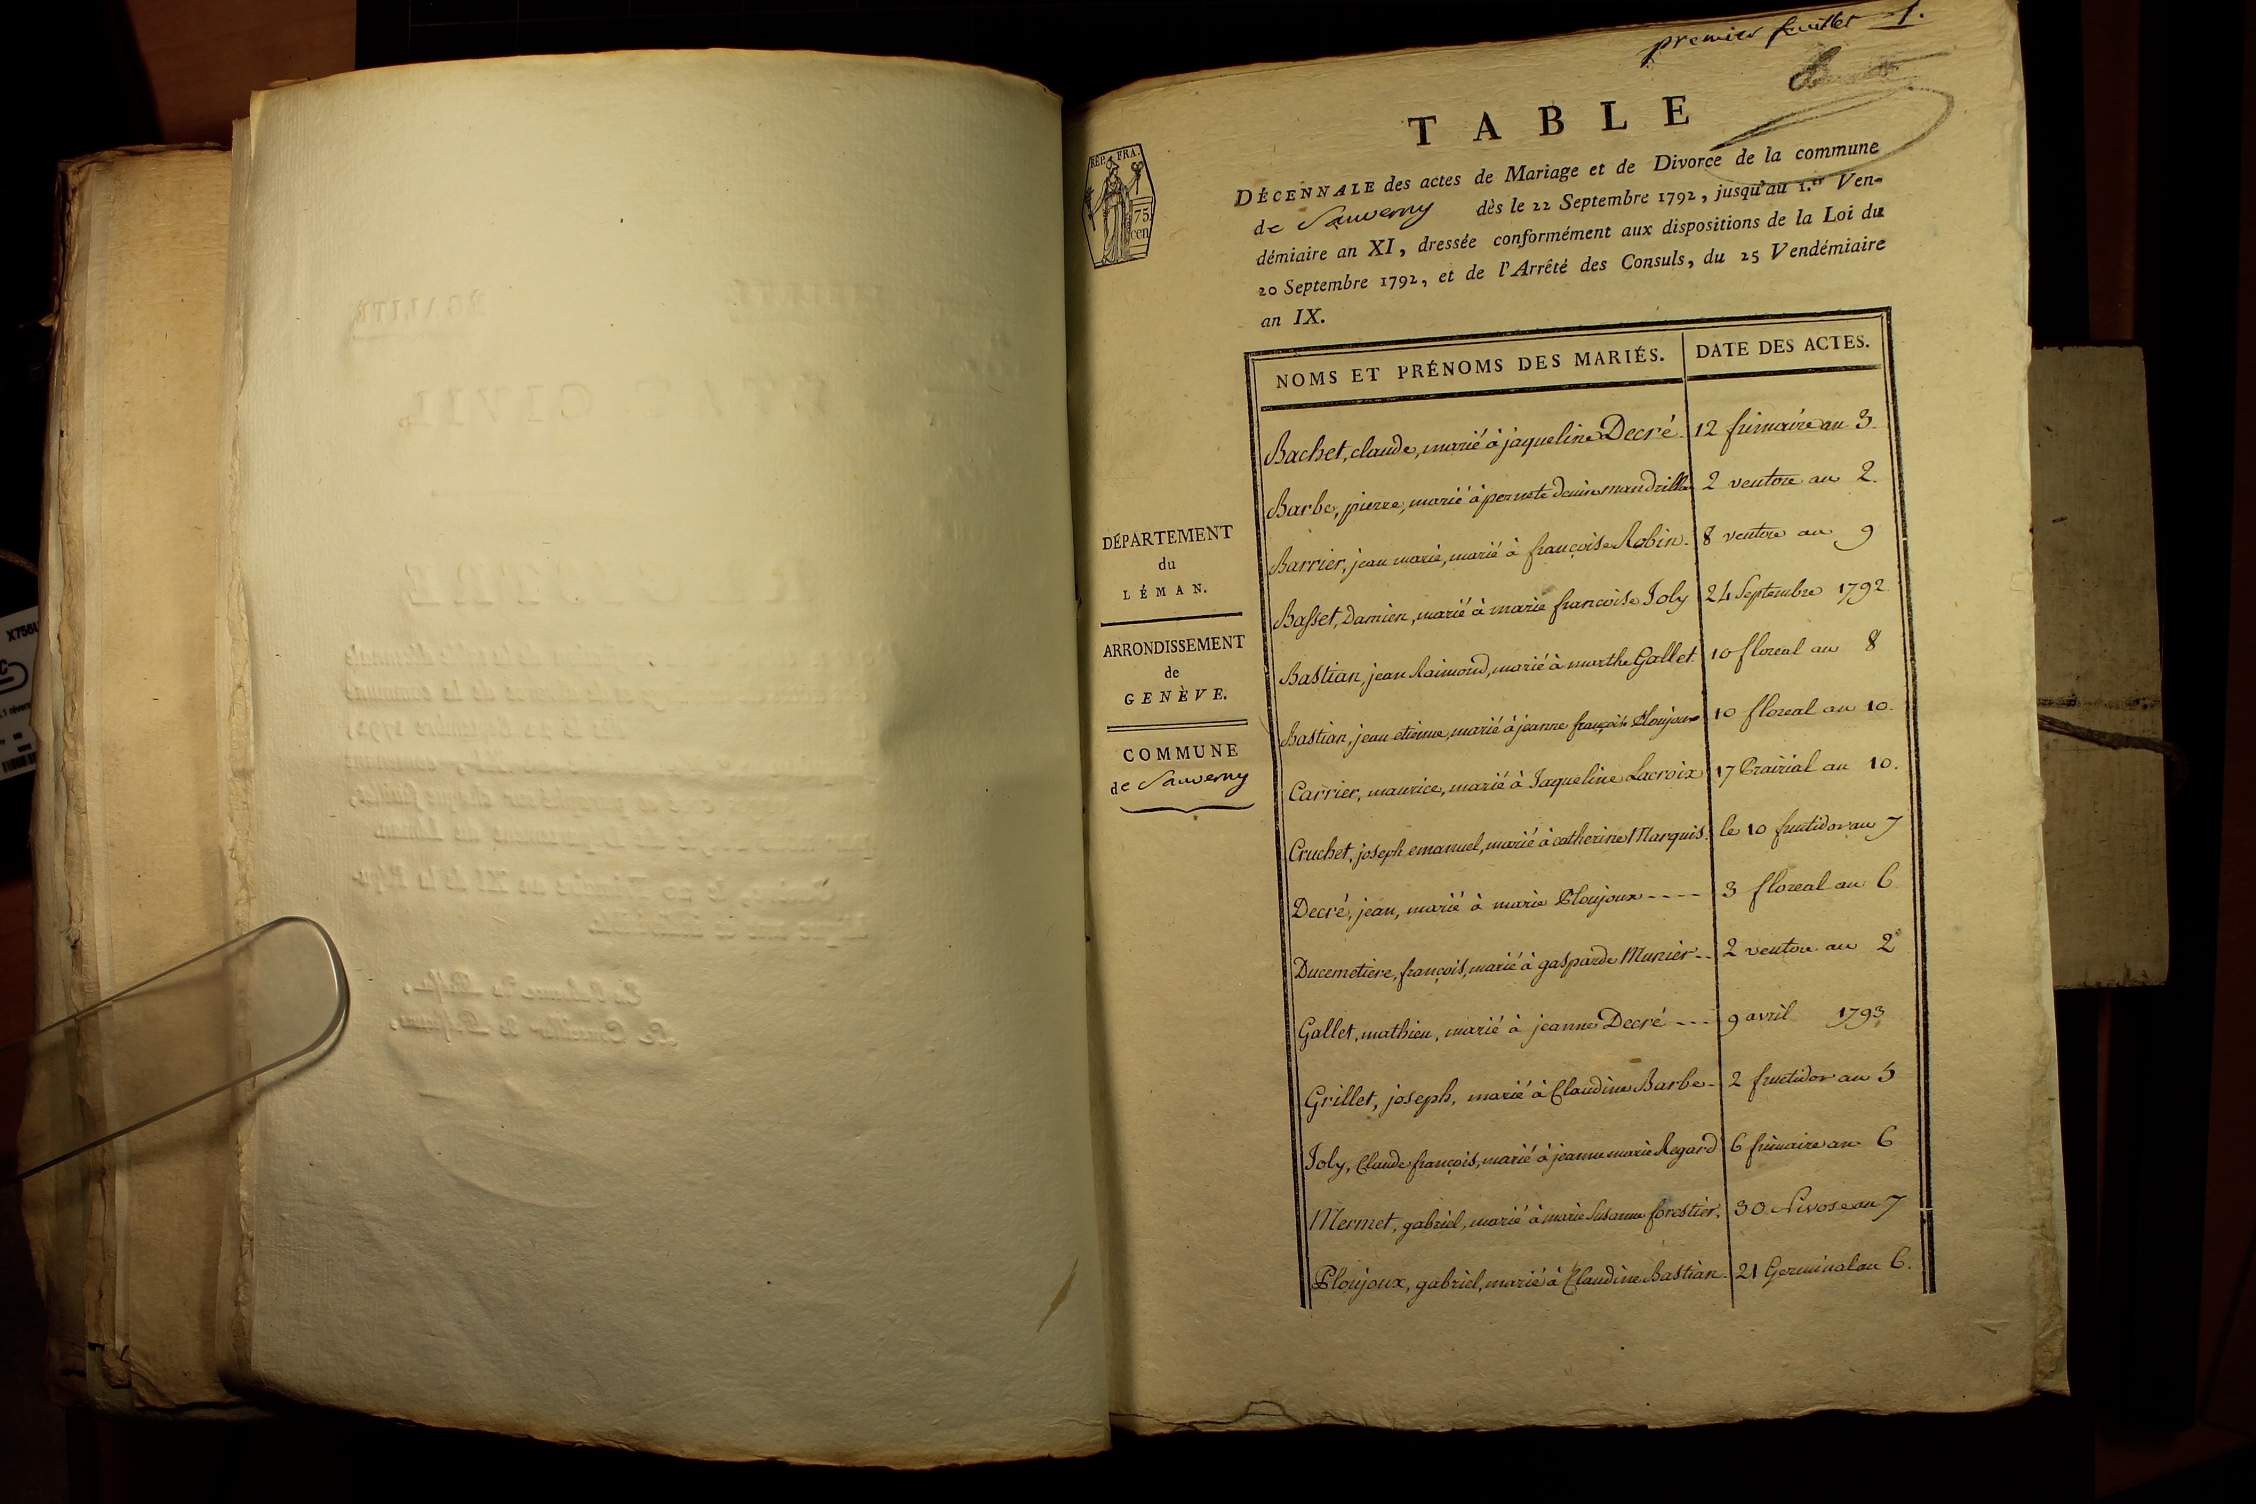 premier feuillet 1.
TABLE
DÉCENNALE des actes de Mariage et de Divorce de la commune
de Sauverny dès le 22 Septembre 1792, jusqu'au 1.er Ven-
démiaire an XI, dressée conformément aux dispositions de la Loi du
20 Septembre 1792, et de l'Arrêté des Consuls, du 25 Vendémiaire
an IX.
RÉP. FRA.
75
cen
DÉPARTEMENT
du
LÉMAN.
ARRONDISSEMENT
de
GENÈVE.
COMMUNE
de Sauverny
NOMS ET PRÉNOMS DES MARIÉS. DATE DES ACTES.
Bachet, claude, marié à jaqueline Decré. 12 frimaire an 3.
Barbe, pierre, marié à pernete 2 ventose an 2.
Barrier, jean marie, marié à françoise Robin. 8 ventose an 9
Basset, Damien, marié à marie francoise Joly 24 Septembre 1792
Bastian, jean Raimond, marié à marthe Gallet. 10 floreal an 8
Bastian, jean etienne, marié à jeanne françoise Ploujoux 10 floreal an 10.
Carrier, maurice, marié à Jaqueline Lacroix 17 Prairial an 10.
Cruchet, joseph emanuel, marié à catherine Marquis. le 10 fructidor an 7
Decré, jean, marié à marie Ploujoux ---- 3 floreal an 6
Ducemetiere, françois, marié à gasparde Munier -- 2 ventose an 2
Gallet, mathieu, marié à jeanne Decré --- 9 avril 1793
Grillet, joseph, marié à Claudine Barbe - 2 fructidor an 5
Joly, Claude françois, marié à jeanne marie Regard 6 frimaire an 6
Mermet, gabriel, marié à marie Susanne forestier. 30 Nivose an 7
Ploujoux, gabriel, marié à Claudine Bastian. 21 Germinal an 6.